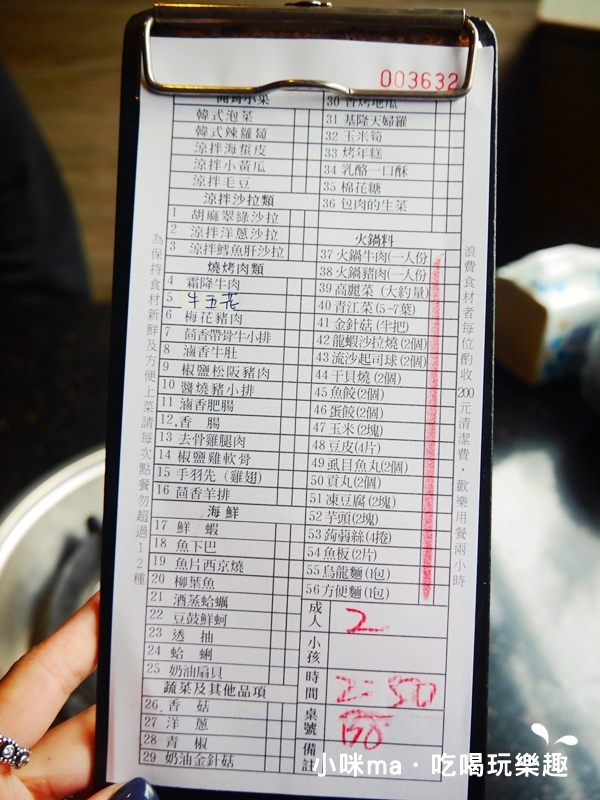 003632
開胃小菜
韓式泡菜
韓式辣蘿蔔
涼拌海蜇皮
涼拌小黃瓜
涼拌毛豆
涼拌沙拉類
1 胡麻翠綠沙拉
2 涼拌洋蔥沙拉
3 涼拌鱈魚肝沙拉
燒烤肉類
4 霜降牛肉
5 牛五花
6 梅花豬肉
7 茴香帶骨牛小排
8 滷香牛肚
9 椒鹽松阪豬肉
10 醬燒豬小排
11 滷香肥腸
12.香 腸
13 去骨雞腿肉
14 椒鹽雞軟骨
15 手羽先（雞翅）
16 茴香羊排
海鮮
17 鮮 蝦
18 魚下巴
19 魚片西京燒
20 柳葉魚
21 酒蒸蛤蠣
22 豆鼓鮮蚵
23 透 抽
24 蛤 蜊
25 奶油扇貝
蔬菜及其他品項
26.香 菇
27 洋 蔥
28 青 椒
29 奶油金針菇
30 香烤地瓜
31 基隆天婦羅
32 玉米筍
33 烤年糕
34 乳酪一口酥
35 棉花糖
36 包肉的生菜
火鍋料
37 火鍋牛肉(一人份
38 火鍋豬肉(一人份
39 高麗菜 (大約量)
40 青江菜(5-7葉)
41 金針菇(半把)
42 龍蝦沙拉燒(2個)
43 流沙起司球(2個)
44 干貝燒(2個)
45 魚餃(2個)
46 蛋餃(2個)
47 玉米(2塊)
48 豆皮(4片)
49 虱目魚丸(2個)
50 貢丸(2個)
51 凍豆腐(2塊)
52 芋頭(2塊)
53 蒟蒻絲(4捲)
54 魚板(2片)
55 烏龍麵(1包)
56 方便麵(1包)
成人 2
小孩
時間 2:50
桌號
備註
為保持食材新鮮及方便上菜請每次點餐勿超過12種
浪費食材者每位酌收200元清潔費，歡樂用餐兩小時
小咪ma．吃喝玩樂趣